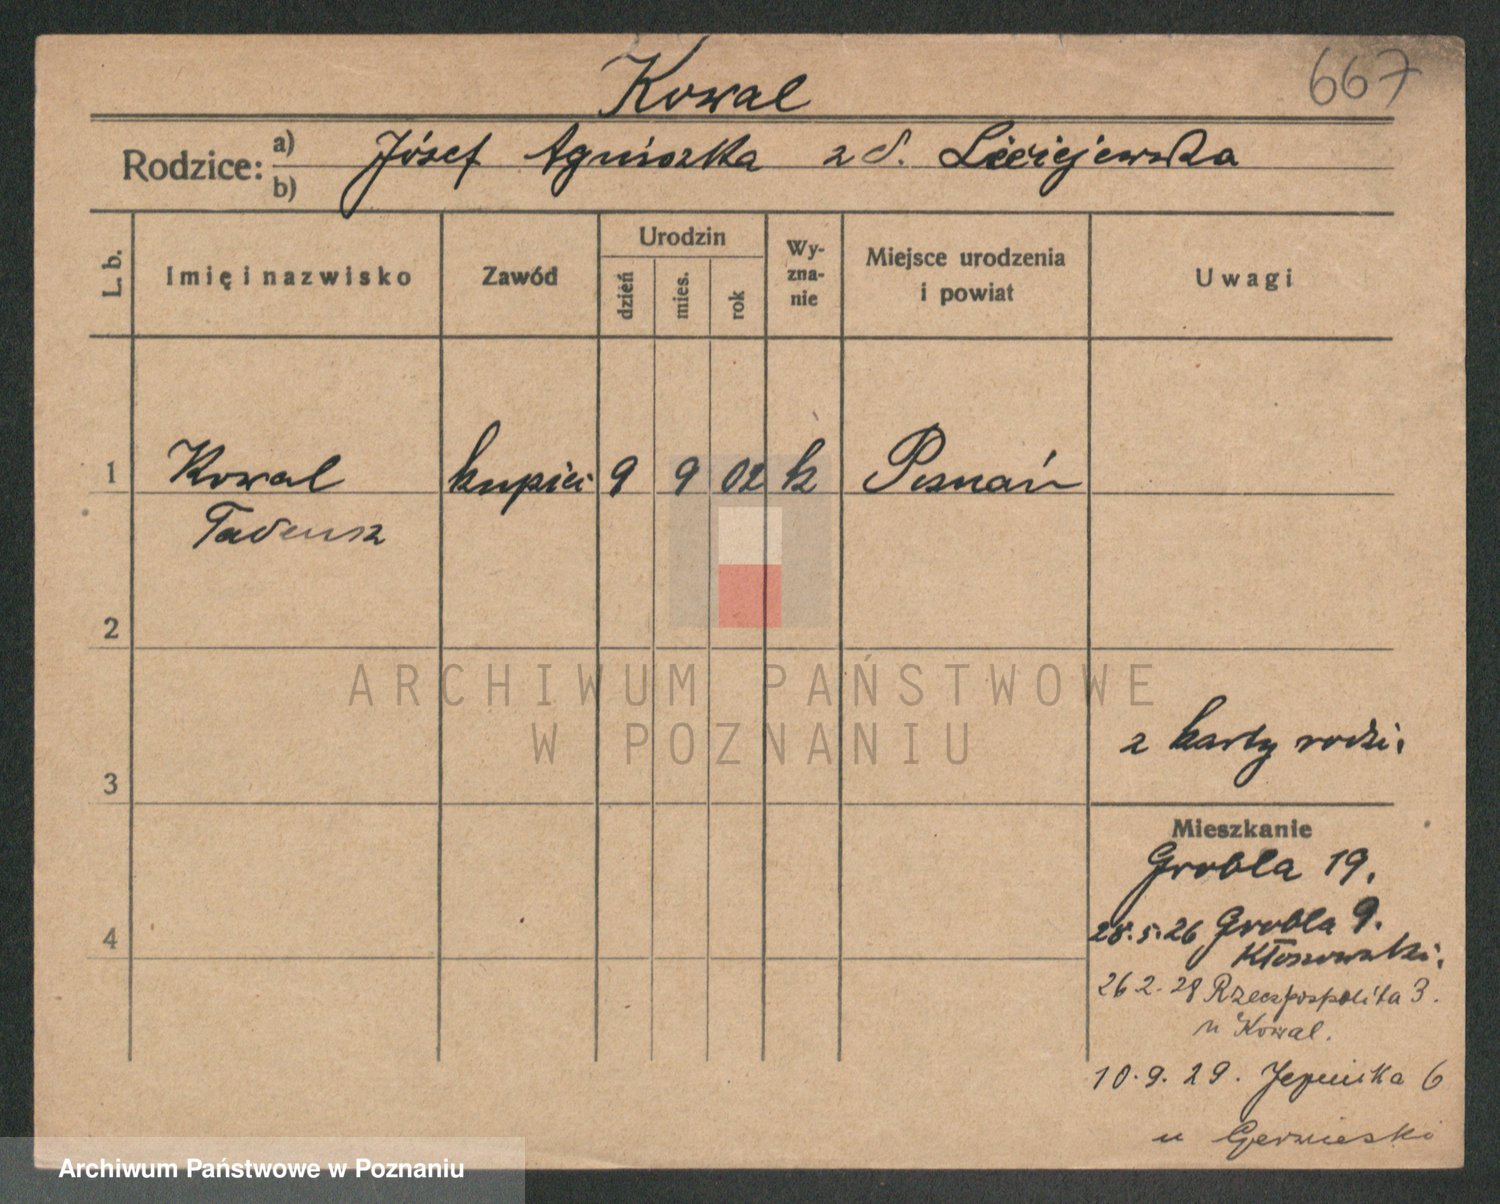 Kowal
667
Rodzice: a) Józef Agnieszka z d.
b)
L. b.
Imię i nazwisko
Zawód
Urodzin
dzień
mies.
rok
Wy-
zna-
nie
Miejsce urodzenia
i powiat
Uwagi
1 Kowal kupiec 9 9 02 k Poznań
Tadeusz
2
ARCHIWUM PAŃSTWOWE
W POZNANIU
z karty rodzi.
3
Mieszkanie
Grobla 19.
28.5.26 Grobla 9.
4
Kłosowski.
26.2.28 Rzeczpospolita 3.
u Kowal.
10.9.29. 6
u
Archiwum Państwowe w Poznaniu